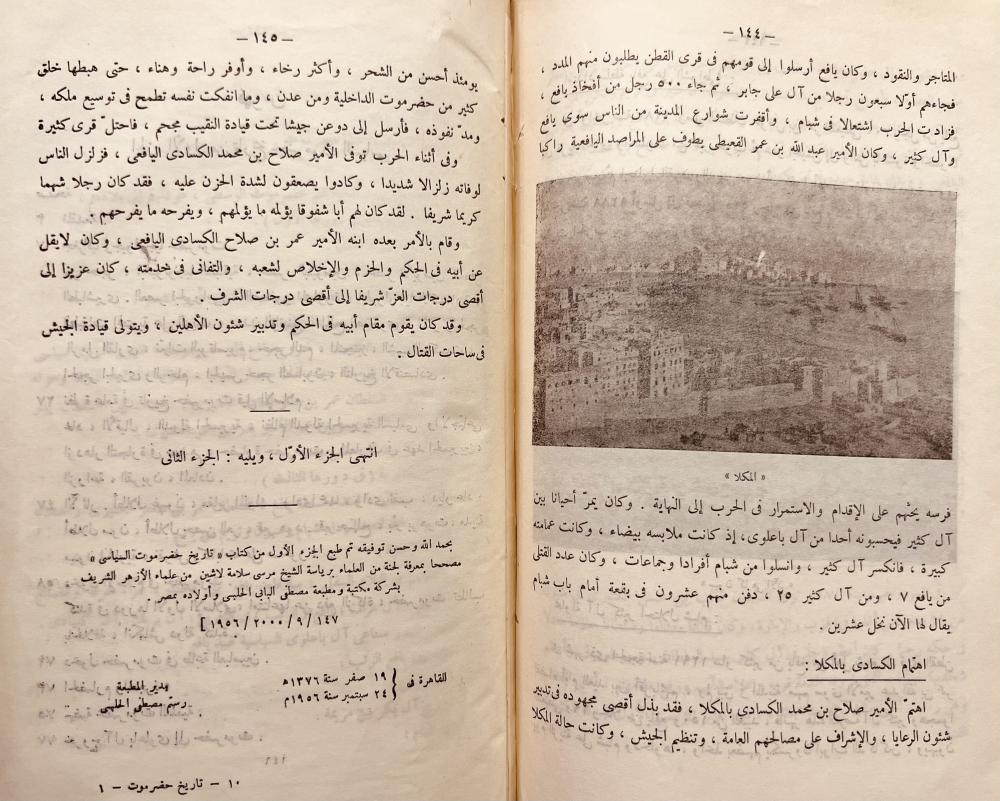 — ١٤٤ —
المتاجر والنقود ، وكان يافع أرسلوا إلى قومهم فى قرى القطن يطلبون منهم المدد ،
فجاءهم أوّلا سبعون رجلا من آل على جابر ، ثم جاء ٥٠٠ رجل من أفخاذ يافع ،
فزادت الحرب اشتعالا فى شبام ، وأقفرت شوارع المدينة من الناس سوى يافع
وآل كثير ، وكان الأمير عبد الله بن عمر القعيطى يطوف على المراصد اليافعية راكبا
« المكلا »
فرسه يحثهم على الإقدام والاستمرار فى الحرب إلى النهاية . وكان يمرّ أحيانا بين
آل كثير فيحسبونه أحدا من آل باعلوى، إذ كانت ملابسه بيضاء ، وكانت عمامته
كبيرة ، فانكسر آل كثير ، وانسلوا من شبام أفرادا وجماعات ، وكان عدد القتلى
من يافع ٧ ، ومن آل كثير ٢٥ ، دفن منهم عشرون فى بقعة أمام باب شبام
يقال لها الآن نخل عشرين .
اهتمام الكسادى بالمكلا :
اهتمّ الأمير صلاح بن محمد الكسادي بالمكلا ، فقد بذل أقصى مجهوده فى تدبير
شئون الرعايا ، والإشراف على مصالحهم العامة ، وتنظيم الجيش ، وكانت حالة المكلا
— ١٤٥ —
يومئذ أحسن من الشحر ، وأكثر رخاء ، وأوفر راحة وهناء ، حتى هبطها خلق
كثير من حضرموت الداخلية ومن عدن ، وما انفكت نفسه تطمح فى توسيع ملكه ،
ومدّ نفوذه ، فأرسل إلى دوعن جيشا تحت قيادة النقيب مجحم ، فاحتلّ قرى كثيرة
وفى أثناء الحرب توفى الأمير صلاح بن محمد الكسادى اليافعى ، فزلزل الناس
لوفاته زلزالا شديدا ، وكادوا يصعقون لشدة الحزن عليه ، فقد كان رجلا شهما
كريما شريفا . لقد كان لهم أبا شفوقا يؤلمه ما يؤلمهم ، ويفرحه ما يفرحهم .
وقام بالأمر بعده ابنه الأمير عمر بن صلاح الكسادى اليافعى ، وكان لايقل
عن أبيه فى الحكم والحزم والإخلاص لشعبه ، والتفانى فى خدمته ، كان عزيزا إلى
أقصى درجات العزّ شريفا إلى أقصى درجات الشرف .
وقد كان يقوم مقام أبيه فى الحكم وتدبير شئون الأهلين ، ويتولى قيادة الجيش
فى ساحات القتال .
انتهى الجزء الأوّل ، ويليه : الجزء الثانى
بحمد الله وحسن توفيقه تم طبع الجزء الأول من كتاب « تاريخ حضرموت السياسى »
مصححا بمعرفة لجنة من العلماء برياسة الشيخ مرسى سلامة لاشين من علماء الأزهر الشريف
بشركة مكتبة ومطبعة مصطفى البابى الحلبى وأولاده بمصر .
[ ١٩٥٦/٢٠٠٠/٩/١٤٧
القاهرة فى { ١٩ صفر سنة ١٣٧٦ه
٢٤ سبتمبر سنة ١٩٥٦م
مدير المطبعة
رستم مصطفى الحلبى
١٠ - تاريخ حضرموت - ١